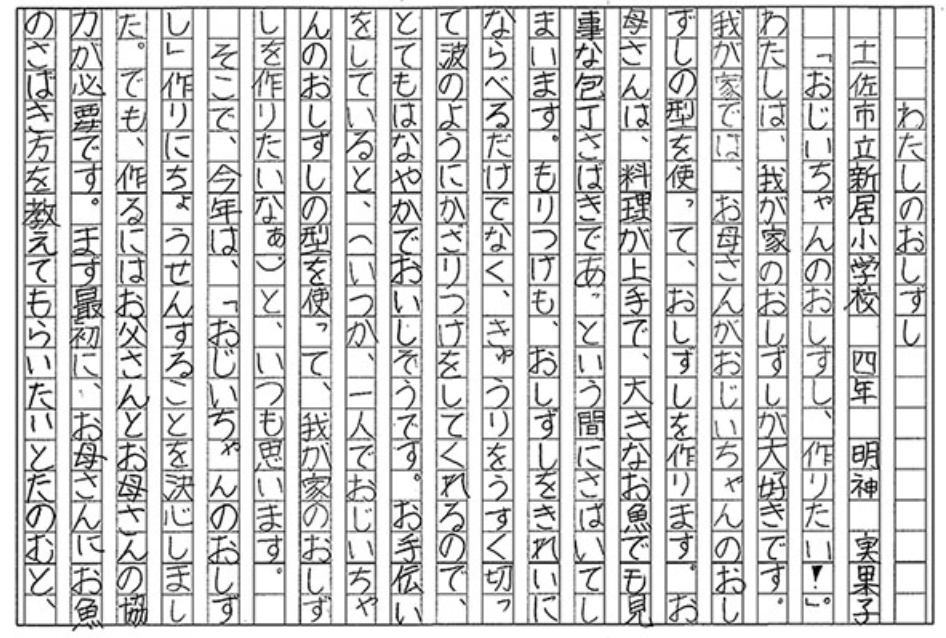 わたしのおしずし
土佐市立新居小学校　四年　明神　実果子
「おじいちゃんのおしずし、作りたい！」。
わたしは、我が家のおしずしが大好きです。
我が家では、お母さんがおじいちゃんのおし
ずしの型を使って、おしずしを作ります。お
母さんは、料理が上手で、大きなお魚でも見
事な包丁さばきであっという間にさばいてし
まいます。もりつけも、おしずしをきれいに
ならべるだけでなく、きゅうりをうすく切っ
て波のようにかざりつけをしてくれるので、
とてもはなやかでおいしそうです。お手伝い
をしていると、（いつか、一人でおじいちゃ
んのおしずしの型を使って、我が家のおしず
しを作りたいなぁ）と、いつも思います。
そこで、今年は、「おじいちゃんのおしず
し」作りにちょうせんすることを決心しまし
た。でも、作るにはお父さんとお母さんの協
力が必要です。まず最初に、お母さんにお魚
のさばき方を教えてもらいたいとたのむと、